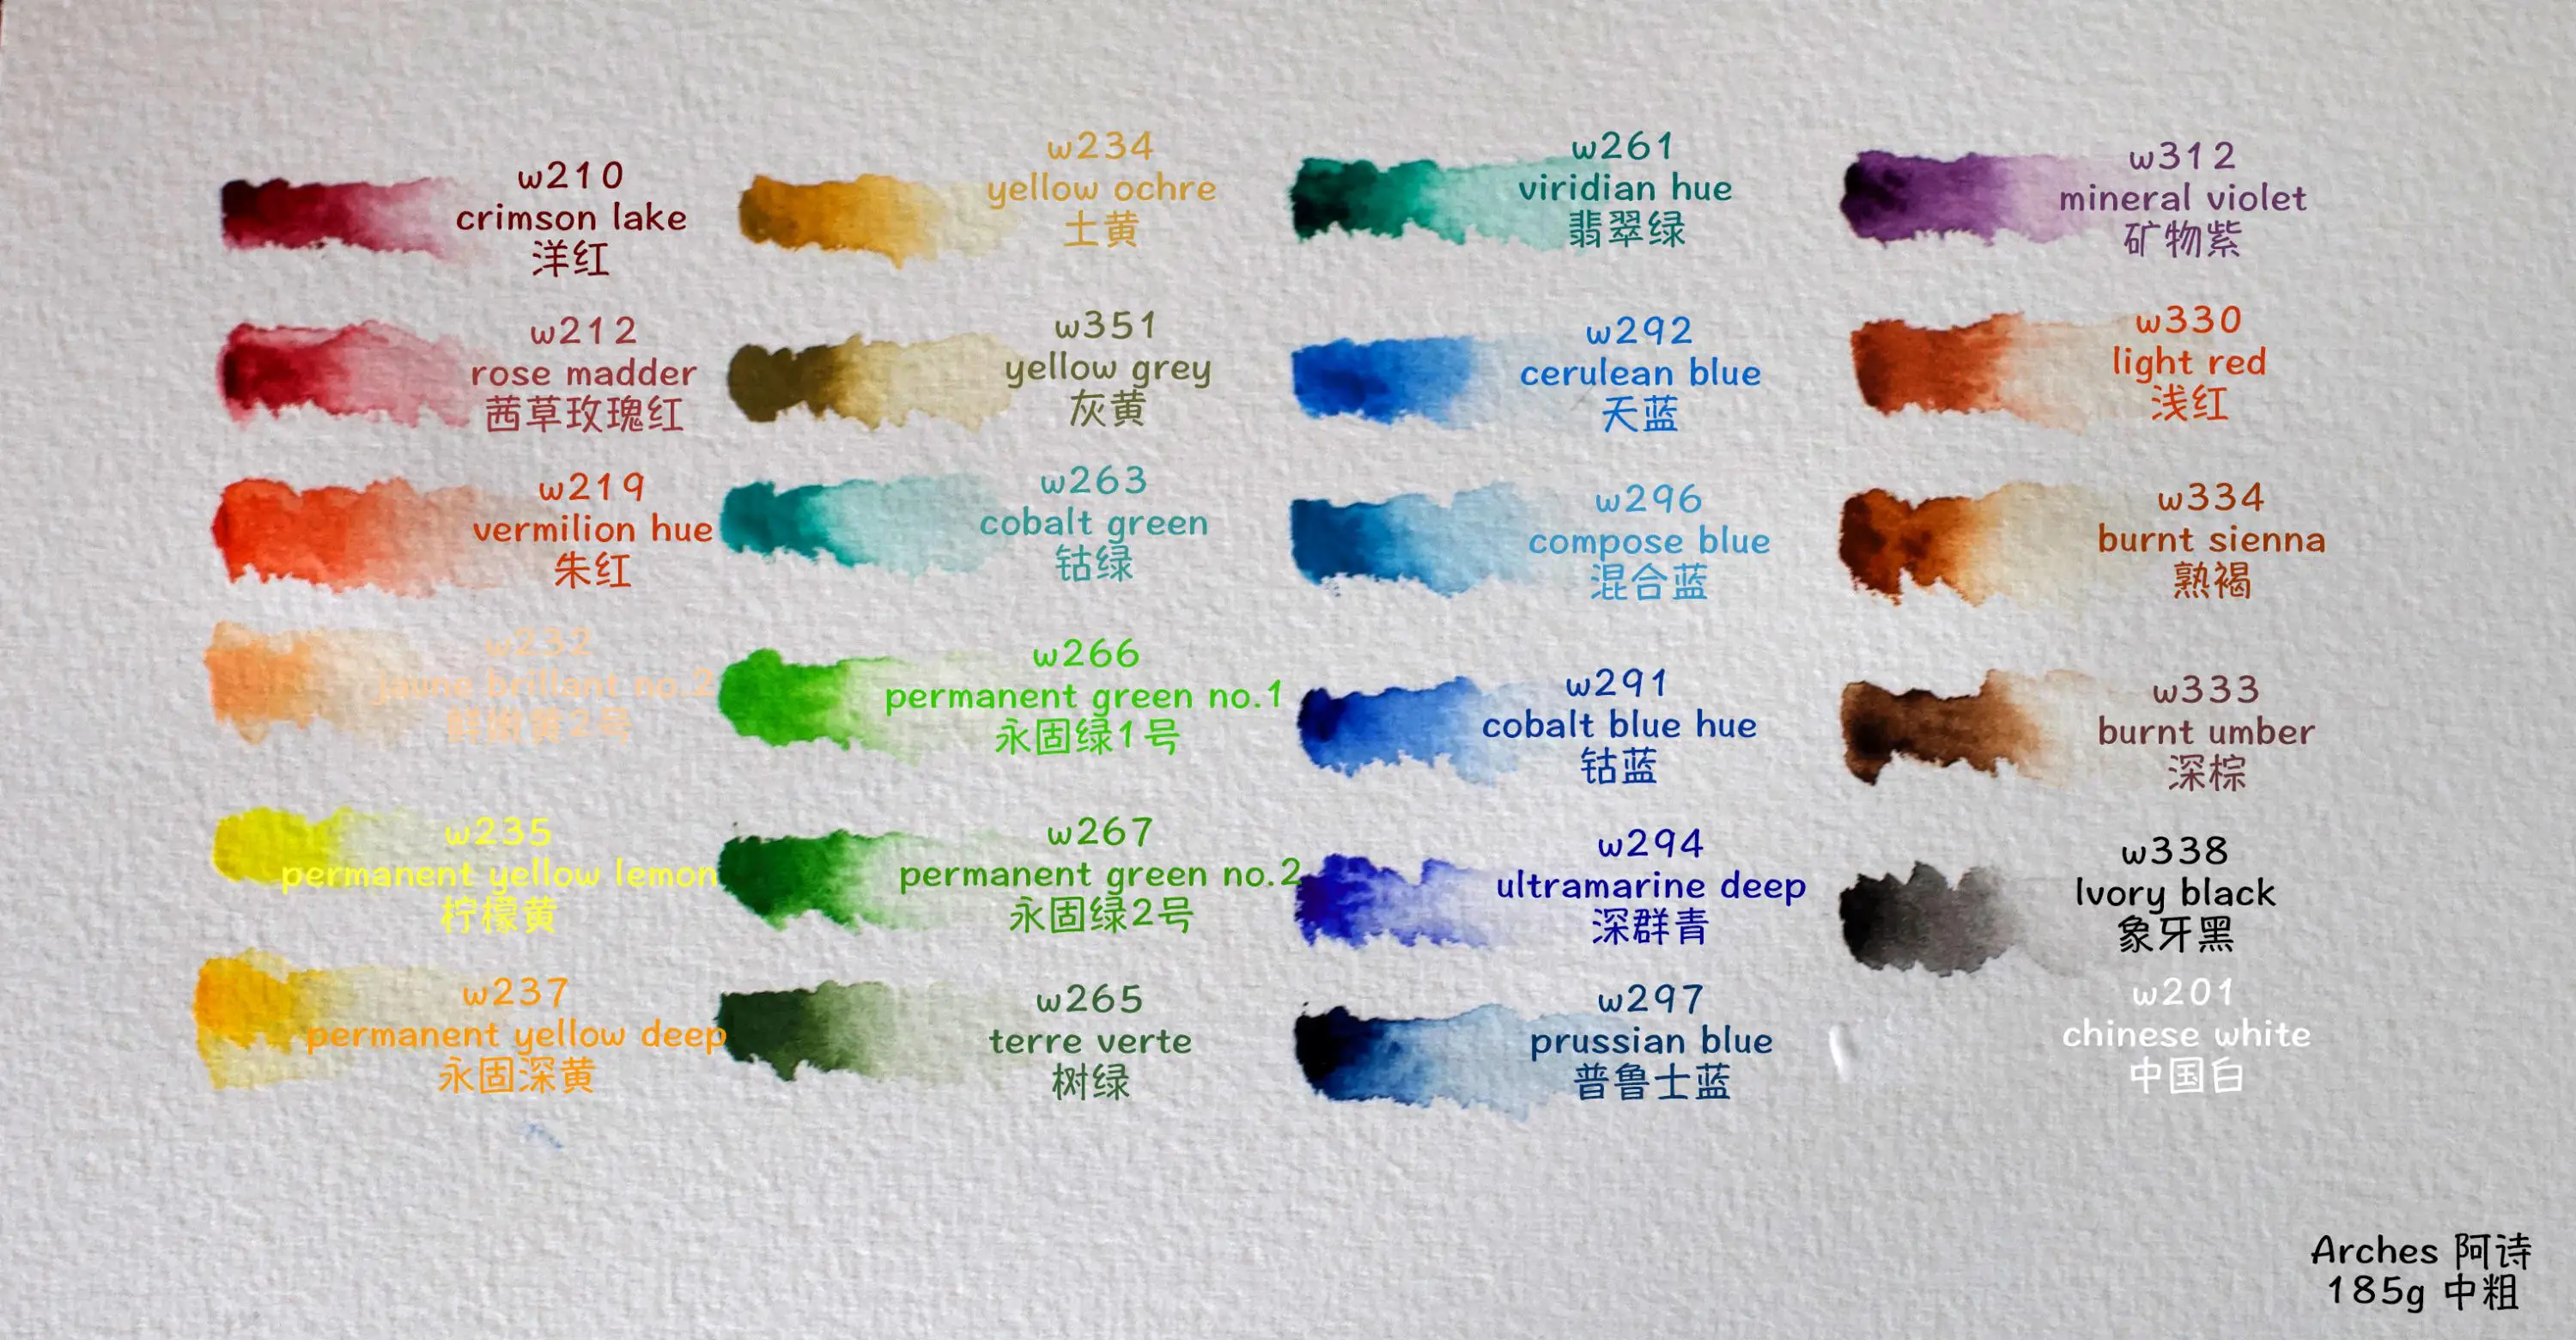 w210
crimson lake
洋红
w212
rose madder
茜草玫瑰红
w219
vermilion hue
朱红
w232
jaune brillant no.2
鲜嫩黄2号
w235
permanent yellow lemon
柠檬黄
w237
permanent yellow deep
永固深黄
w234
yellow ochre
土黄
w351
yellow grey
灰黄
w263
cobalt green
钴绿
w266
permanent green no.1
永固绿1号
w267
permanent green no.2
永固绿2号
w265
terre verte
树绿
w261
viridian hue
翡翠绿
w292
cerulean blue
天蓝
w296
compose blue
混合蓝
w291
cobalt blue hue
钴蓝
w294
ultramarine deep
深群青
w297
prussian blue
普鲁士蓝
w312
mineral violet
矿物紫
w330
light red
浅红
w334
burnt sienna
熟褐
w333
burnt umber
深棕
w338
lvory black
象牙黑
w201
chinese white
中国白
Arches 阿诗
185g 中粗